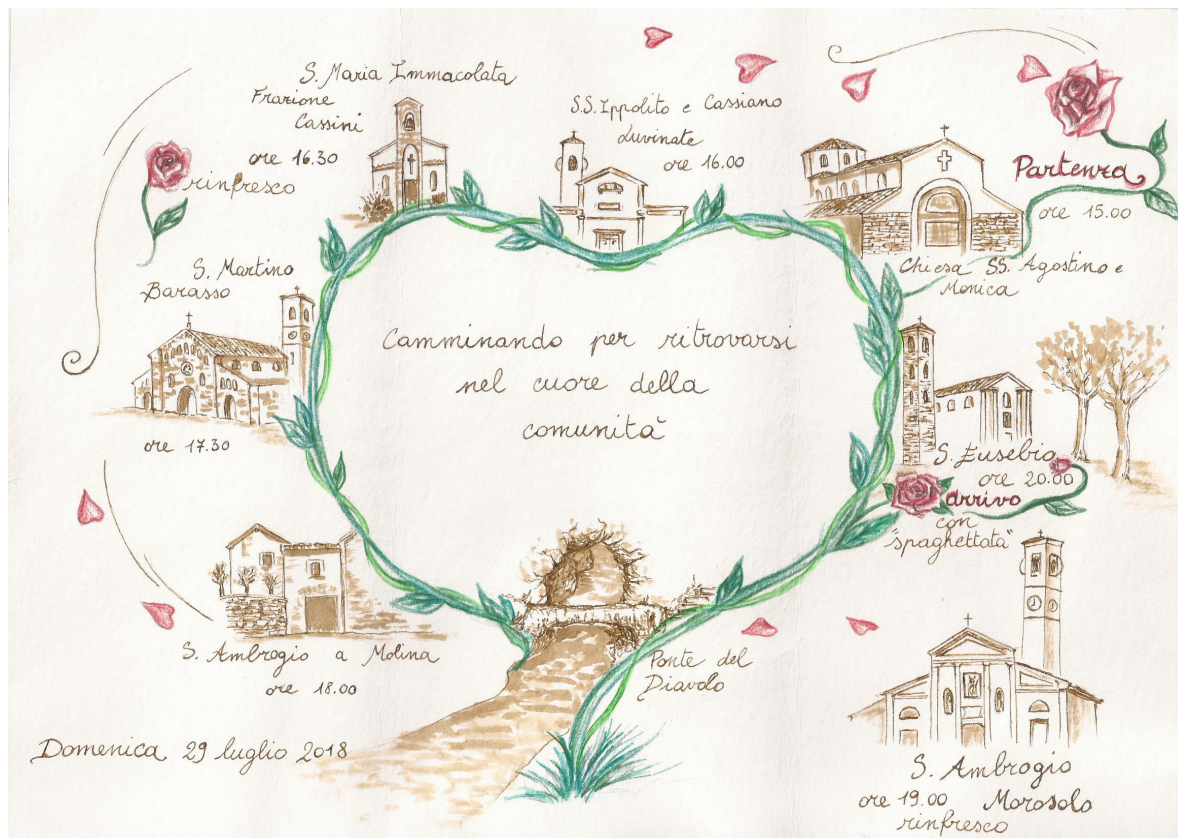 S. Maria Immacolata
Frazione
Cassini
ore 16.30
rinfresco
S.S. Ippolito e Cassiano
Luvinate
ore 16.00
Partenza
ore 15.00
Chiesa SS. Agostino e
Monica
S. Martino
Barasso
ore 17.30
Camminando per ritrovarsi
nel cuore della
comunità
S. Eusebio
ore 20.00
arrivo
con
"spaghettata"
S. Ambrogio a Molina
ore 18.00
Ponte del
Diavolo
Domenica 29 luglio 2018
S. Ambrogio
ore 19.00 Morosolo
rinfresco